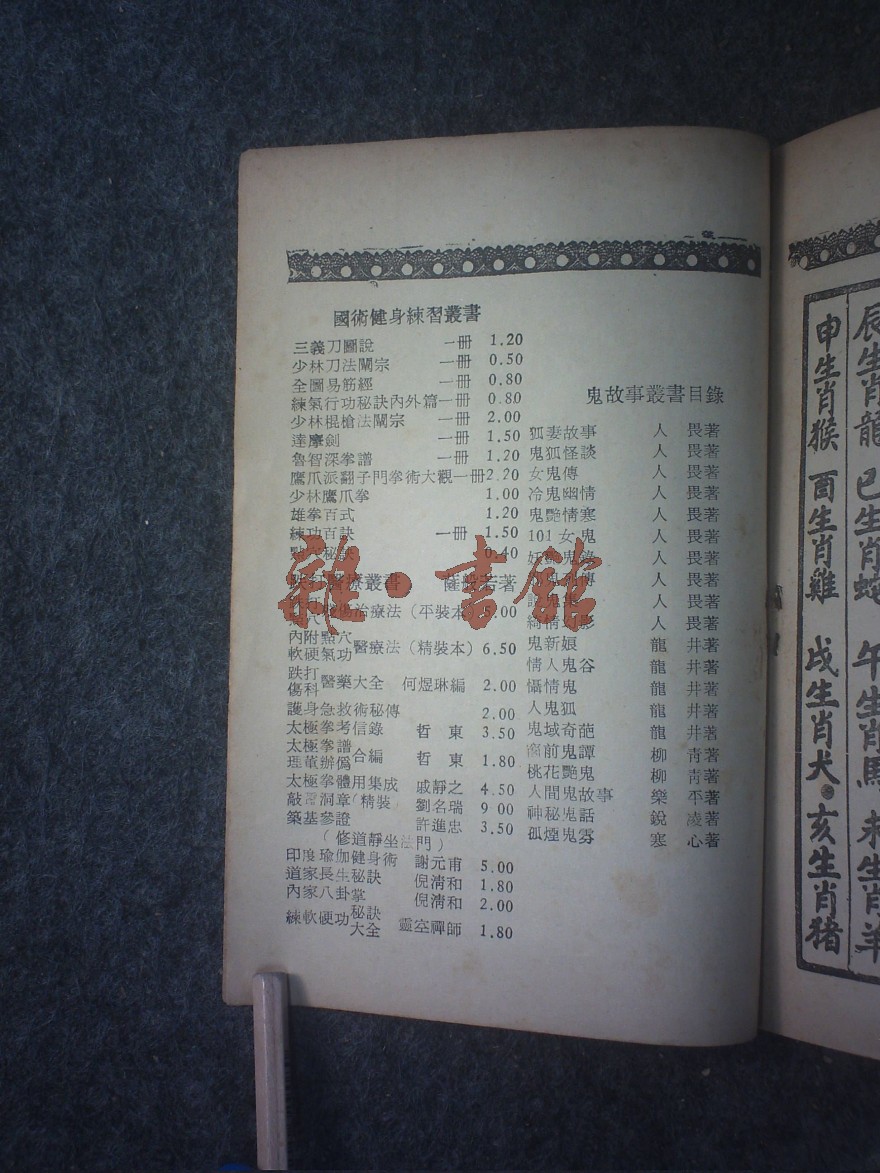 國術健身練習叢書
三義刀圖說 一冊 1.20
少林刀法闡宗 一冊 0.50
全圖易筋經 一冊 0.80
練氣行功秘訣內外篇一冊 0.80
少林棍槍法闡宗 一冊 2.00
達摩劍 一冊 1.50
魯智深拳譜 一冊 1.20
鷹爪派翻子門拳術大觀一冊2.20
少林鷹爪拳 1.00
雄拳百式 1.20
練功百訣 一冊 1.50
秘訣 0.40
跌打醫療叢書 薩般若著
治療法(平裝本) 5.00
內附點穴
軟硬氣功
醫療法(精裝本) 6.50
跌打
傷科
醫藥大全 何煜琳編 2.00
護身急救術秘傳 2.00
太極拳考信錄 哲東 3.50
太極拳譜
理董辦僞
合編 哲東 1.80
太極拳體用集成 戚靜之 4.50
敲蹻洞章(精裝 劉名瑞 9 00
築基參證 許進忠 3.50
(修道靜坐法門)
印度瑜伽健身術 謝元甫 5.00
道家長生秘訣 倪清和 1.80
內家八卦掌 倪清和 2.00
練軟硬功
秘訣
大全
靈空禪師 1.80
鬼故事叢書目錄
狐妻故事 人畏著
鬼狐怪談 人畏著
女鬼傳 人畏著
冷鬼幽情 人畏著
鬼艷情寒 人畏著
101女鬼 人畏著
人畏著
人畏著
人畏著
人畏著
鬼新娘 龍井著
情人鬼谷 龍井著
懾情鬼 龍井著
人鬼狐 龍井著
鬼域奇葩 龍井著
窗前鬼譚 柳青著
桃花艷鬼 柳青著
人間鬼故事 樂平著
神秘鬼話 銳凌著
孤煙鬼雰 寒心著
雜·書館
辰生肖龍 巳生肖蛇 午生肖馬 未生肖羊
申生肖猴 酉生肖雞 戌生肖犬 亥生肖猪